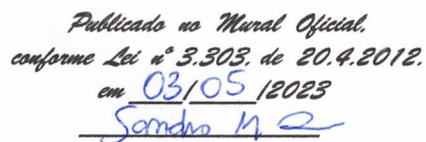 Publicado no Mural Oficial,
conforme Lei nº 3.303, de 20.4.2012.
em 03/05/2023
Sandro M